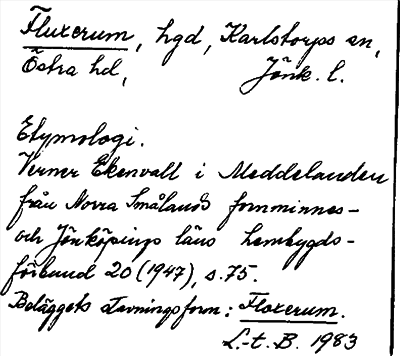 Fluxerum, hgd, Karlstorps sn,
Östra hd, Jönk. l.
Etymologi.
Verner Ekenvall i Meddelanden
från Norra Smålands fornminnes-
och Jönköpings läns hembygds-
förbund 20 (1947), s. 75.
Beläggets stavningsform: Floxerum.
L.-t. B. 1983